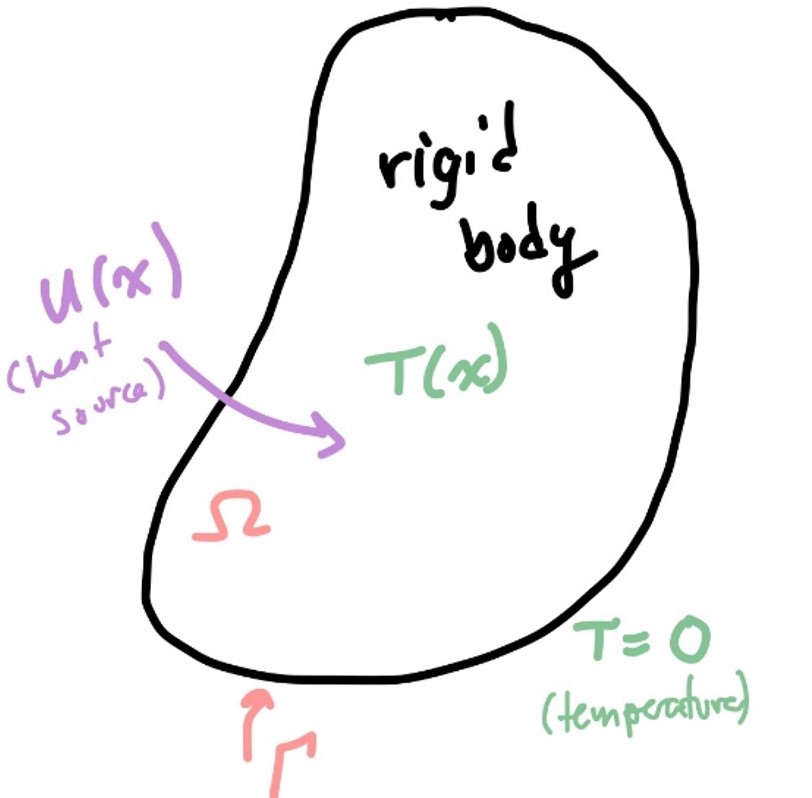 rigid
body
U(x)
(heat
source)
T(x)
Ω
T = 0
(temperature)
Γ